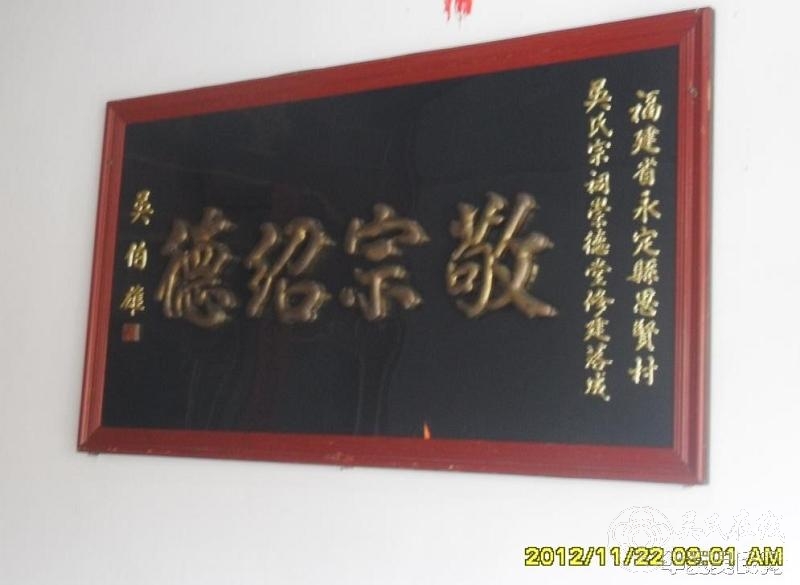 福建省永定縣思賢村
吳氏宗祠崇德堂修建落成
敬宗紹德
吳伯雄
2012/11/22 09:01 AM